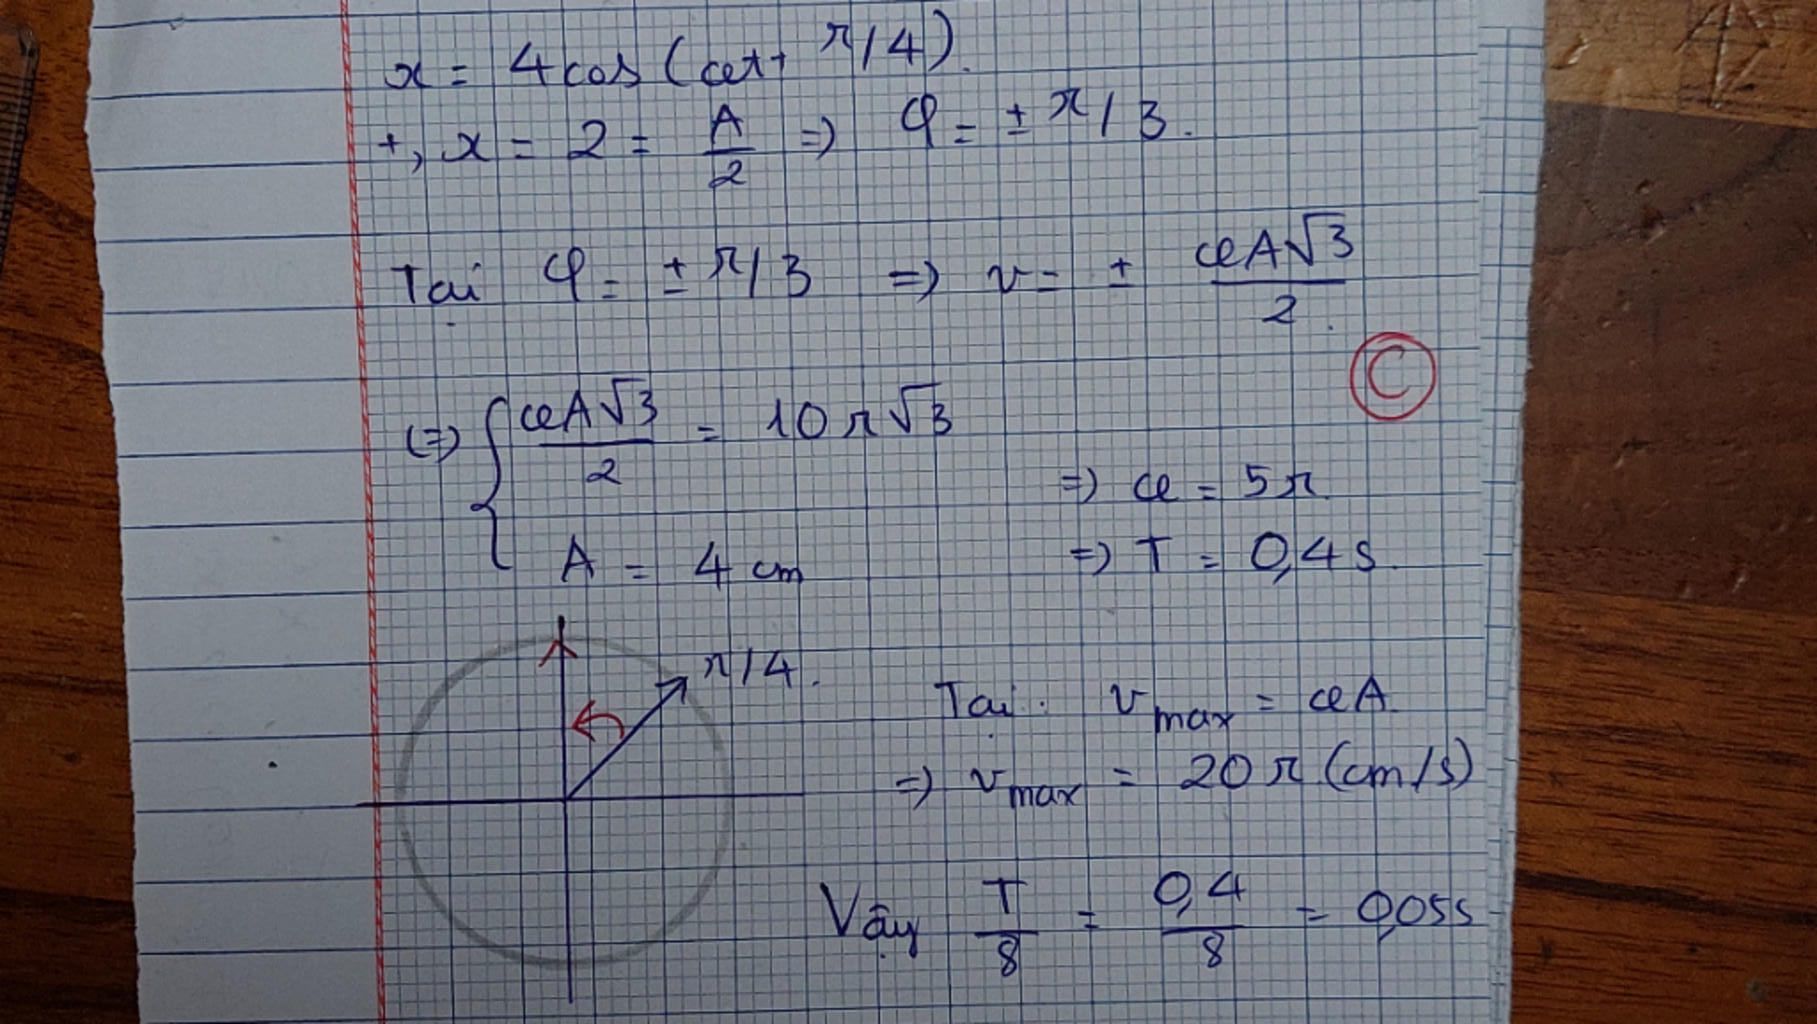 x = 4cos(ωt + π/4).
+, x = 2 = A/2 => φ = ± π/3.
Tại φ = ± π/3 => v = ± ωA√3/2.
C
(=>) { ωA√3/2 = 10π√3 => ω = 5π.
A = 4 cm => T = 0,4s.
π/4.
Tại. vmax = ωA.
=> vmax = 20π (cm/s)
Vậy T/8 = 0,4/8 = 0,05s